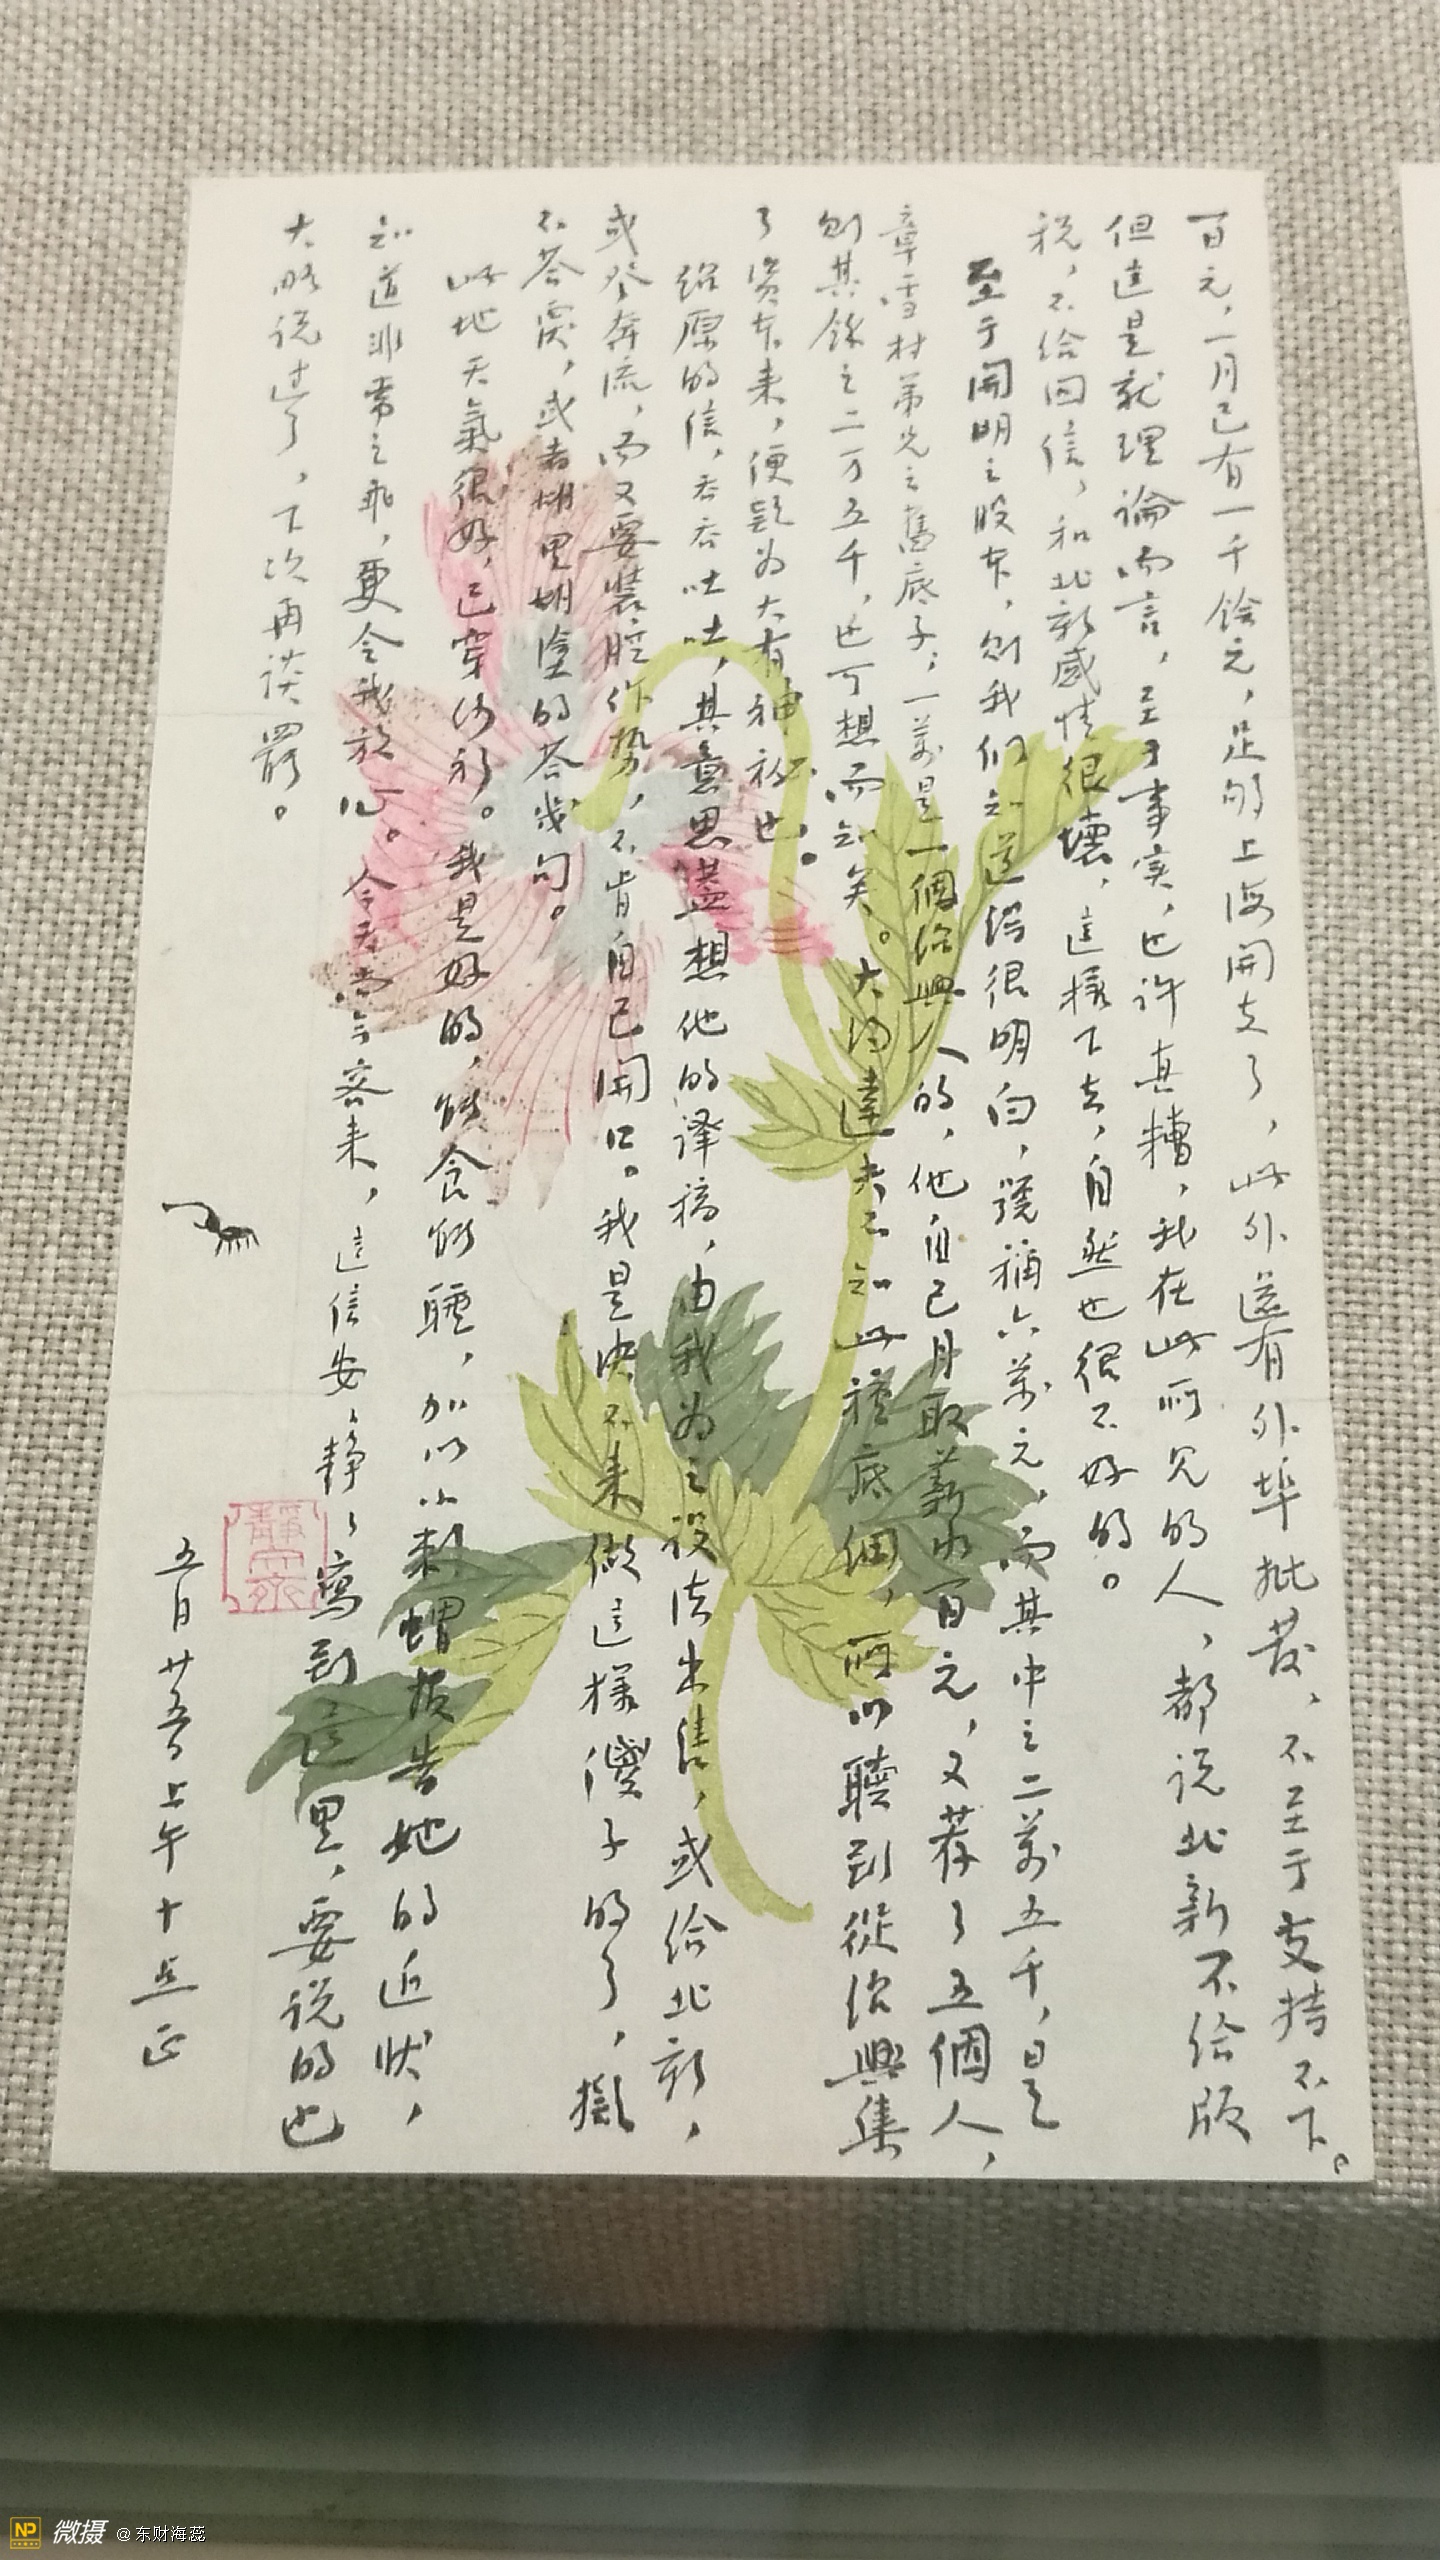 百元，一月已有一千餘元，足够上海開支了，此外還有外埠批發，不至于支持不下。
但這是就理論而言，至于事实，也许真糟，我在此所见的人，都说北新不给版
税，不给回信，和北新感情很壞，這樣下去，自然也很不好的。
至于開明之股本，则我们知道得很明白，號稱六萬元，而其中之二萬五千，是
章雪村弟兄之舊底子；一萬是一個紹興人的，他自己月取薪水百元，又荐了五個人，
则其餘之二万五千，也可想而知矣。大约達夫不知此種底细，所以聽到從紹興集
了资本来，便疑为大有神秘也。
绍原的信，吞吞吐吐，其意思蓋想他的译稿，由我为之设法出售，或给北新，
或登奔流，而又要装腔作势，不肯自己開口。我是决不来做這樣傻子的了，擬
不答覆，或者胡里胡塗的答幾句。
此地天氣很好，已穿纱衫。我是好的，能食能睡，加以小刺蝟报告她的近状，
知道非常之乖，更令我放心。今天尚无客来，這信安安靜靜寫到這里，要说的也
大略说过了，下次再谈罷。
五月廿五上午十点正
靜霓
NP 微摄 @东财海蕊